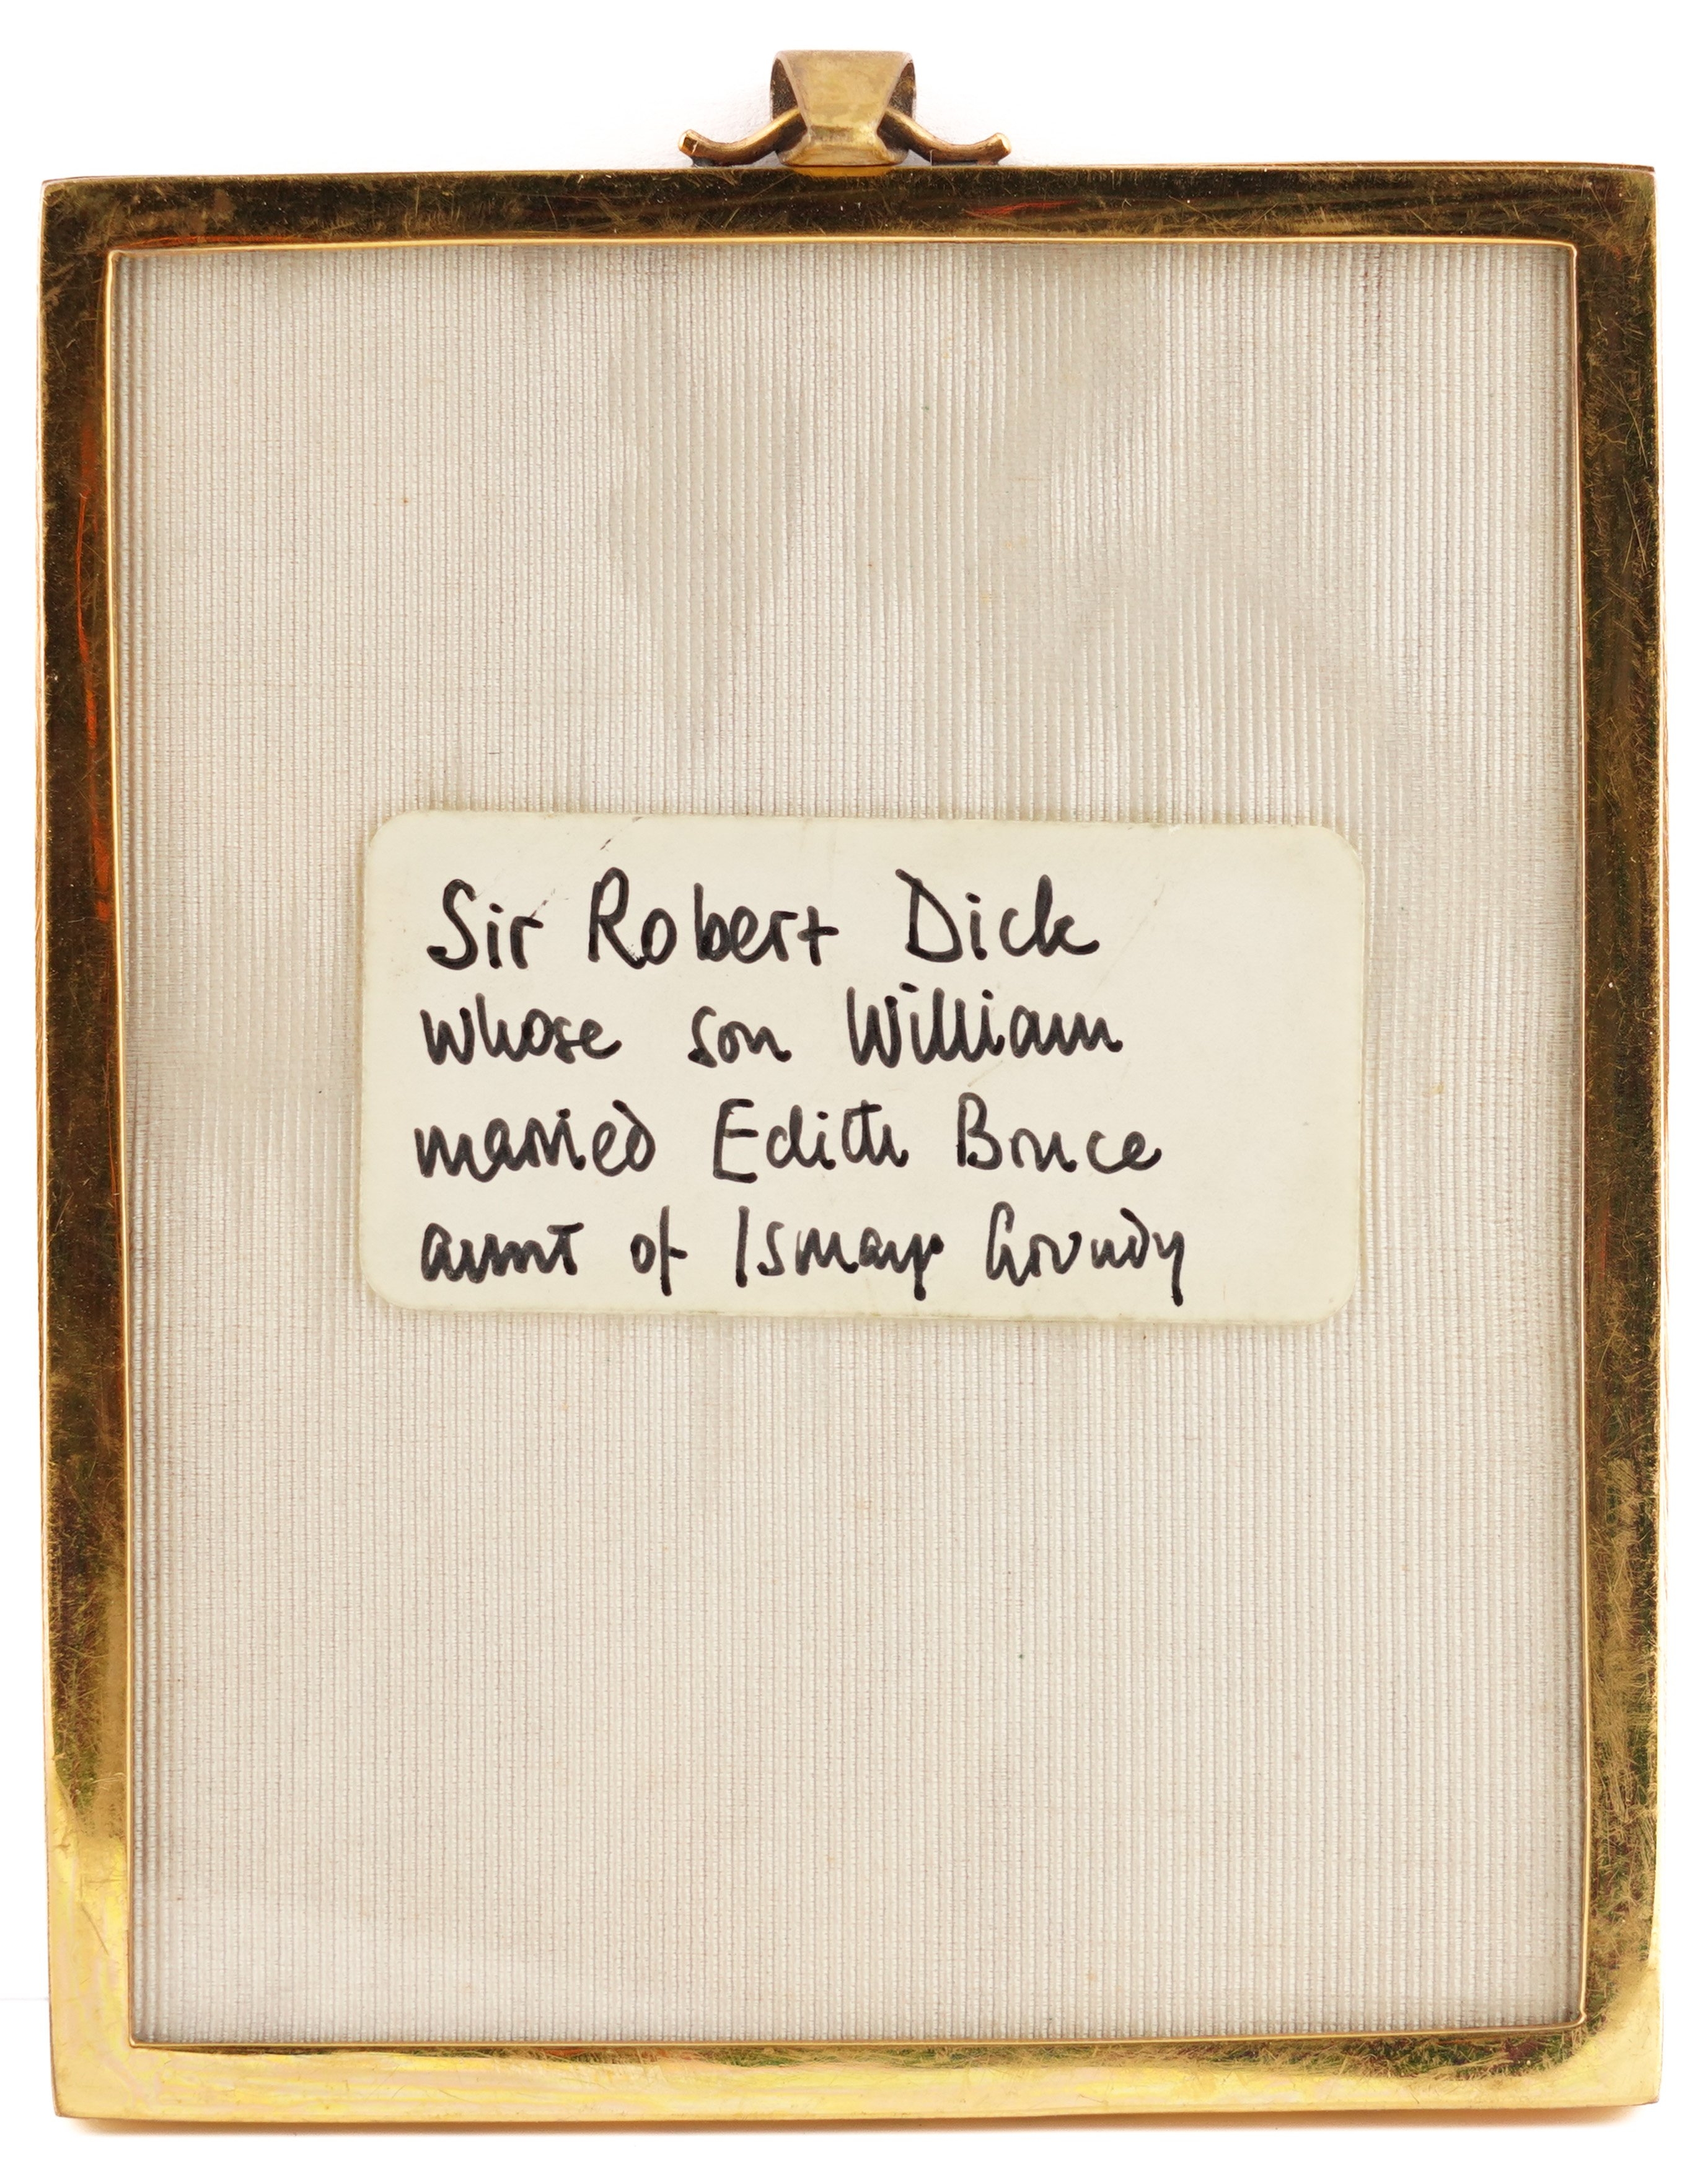 Sir Robert Dick
whose son William
married Edith Bruce
aunt of Ismay Grundy